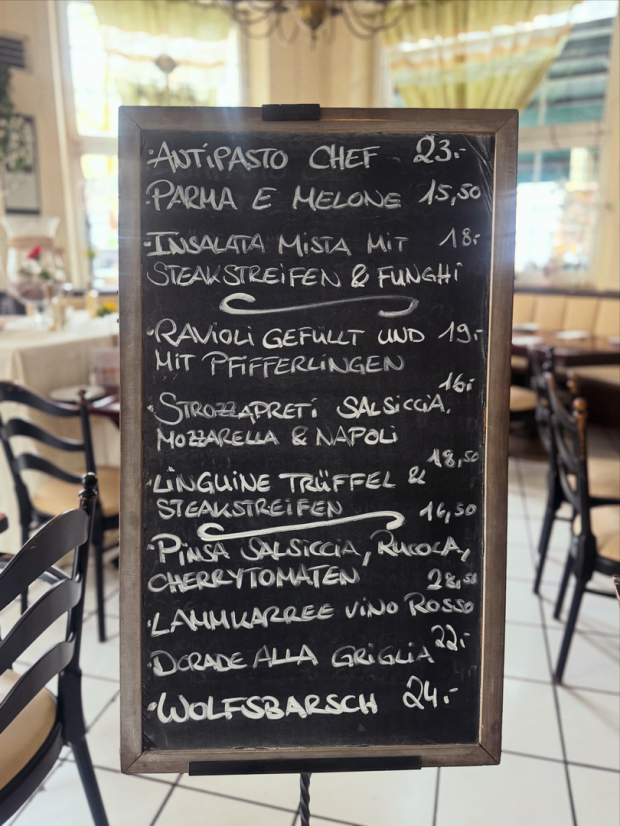 ·ANTIPASTO CHEF 23.-
·PARMA E MELONE 15,50
·INSALATA MISTA MIT 18.-
STEAKSTREIFEN & FUNGHI
·RAVIOLI GEFÜLLT UND 19.-
MIT PFIFFERLINGEN
16.-
·STROZZAPRETI SALSICCIA,
MOZZARELLA & NAPOLI
18,50
·LINGUINE TRÜFFEL &
STEAKSTREIFEN 16,50
·PINSA SALSICCIA, RUCOLA,
CHERRYTOMATEN 28,50
·LAMMKARREE VINO ROSSO
22.-
·DORADE ALLA GRIGLIA
·WOLFSBARSCH 24.-